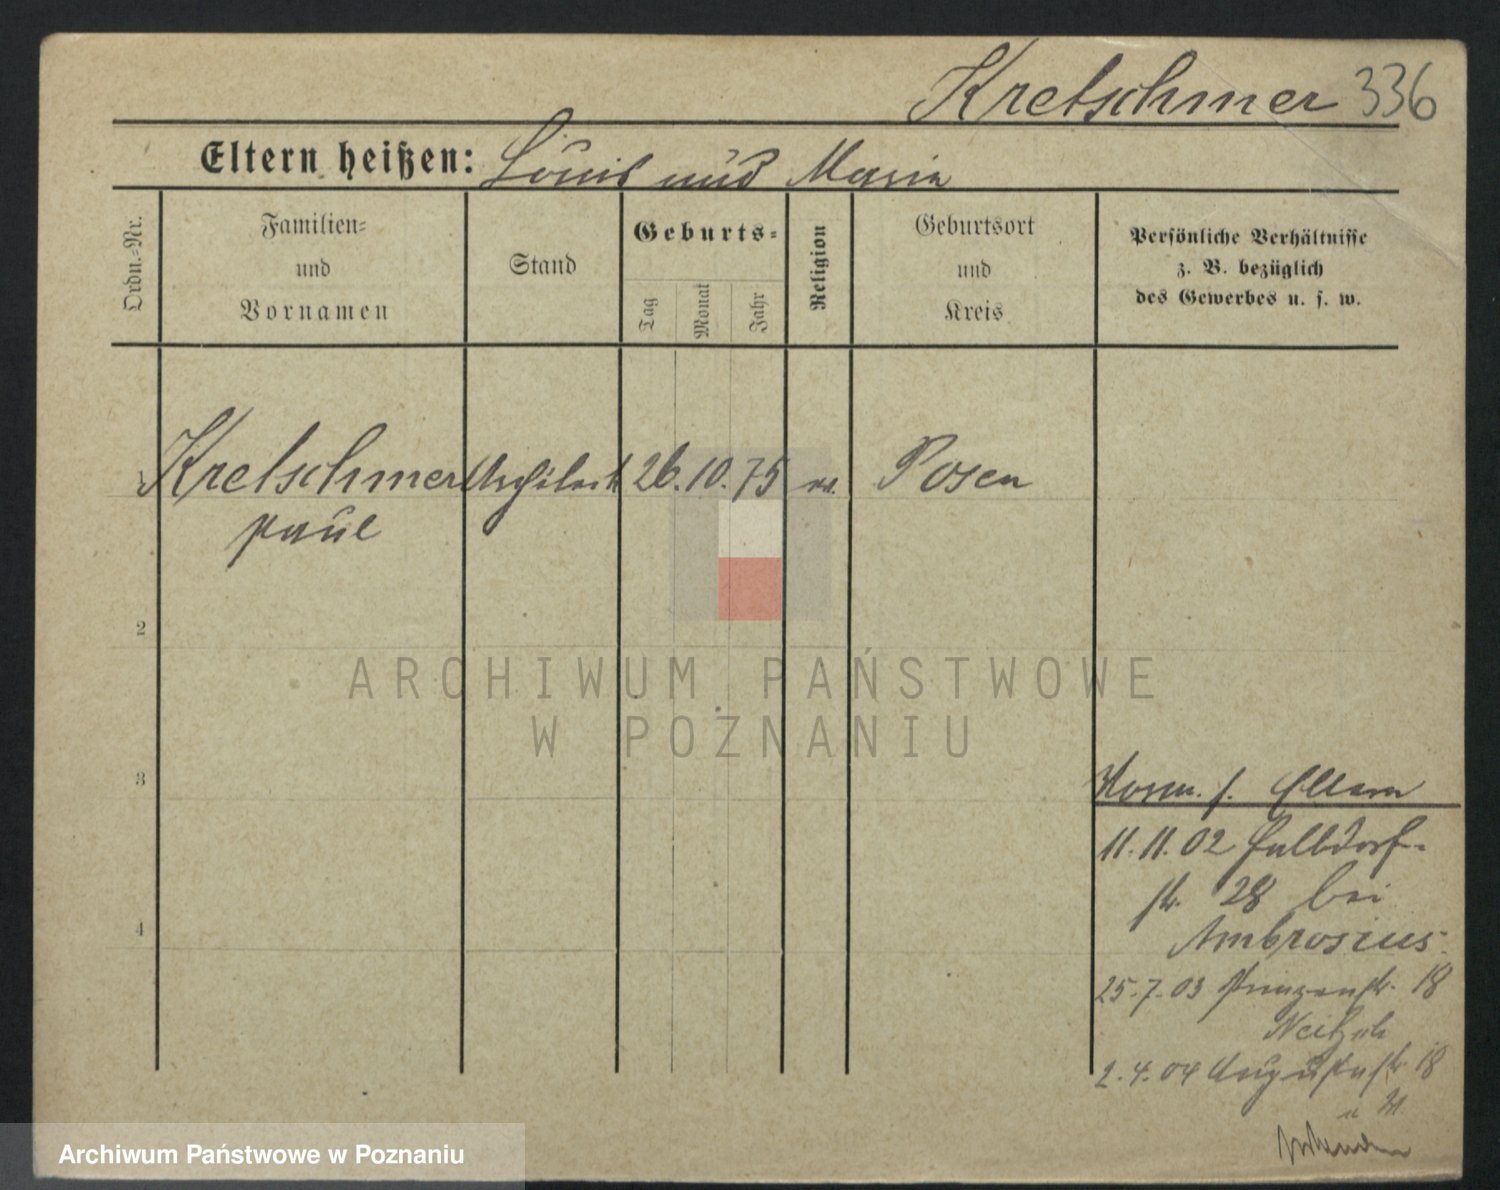 Kretschmer 336
Eltern heißen: Louis und Maria
Ordn.-Nr.
Familien-
und
Vornamen
Stand
Geburts-
Tag
Monat
Jahr
Religion
Geburtsort
und
Kreis
Persönliche Verhältnisse
z. B. bezüglich
des Gewerbes u. s. w.
1 Kretschmer Architect 26. 10. 75 ev. Posen
Paul
2
3
4
Eltern
11. 11. 02
str. 28 bei
Ambrosius.
25. 7. 03 Prinzenstr. 18
2. 4. 04 Augustastr. 18
ARCHIWUM PAŃSTWOWE
W POZNANIU
Archiwum Państwowe w Poznaniu